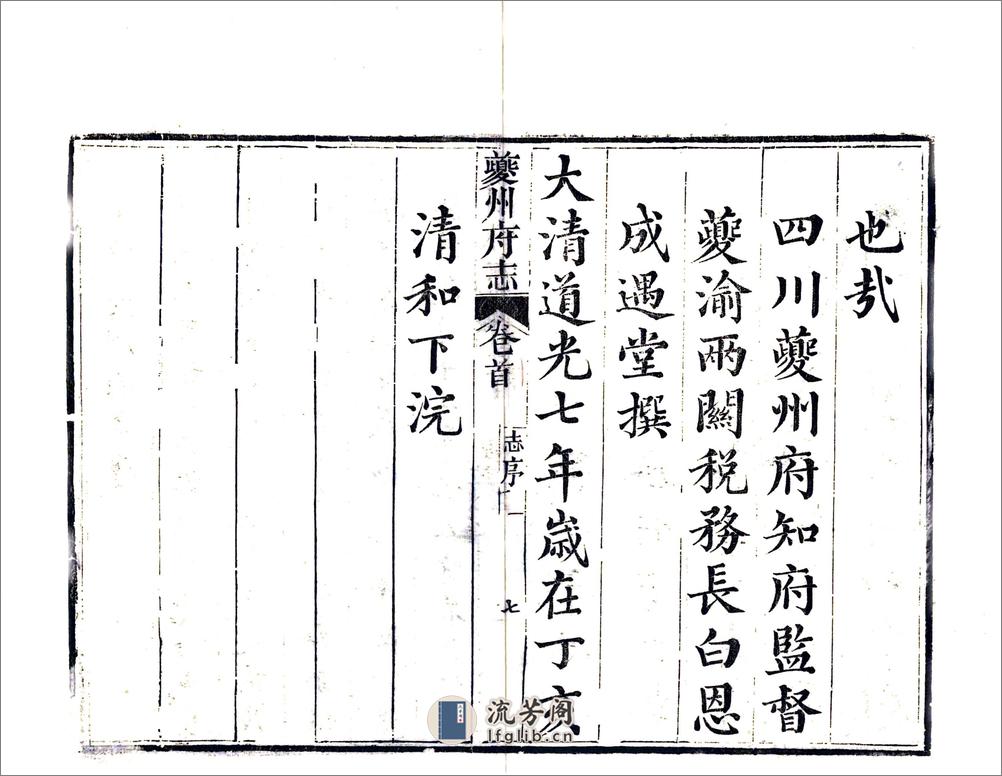 也㢤
四川夔州府知府監督
夔渝兩關稅務長白恩
成遇堂撰
大清道光七年歲在丁亥
夔州府志 卷首 志序 七
清和下浣
流芳阁
lfglib.cn